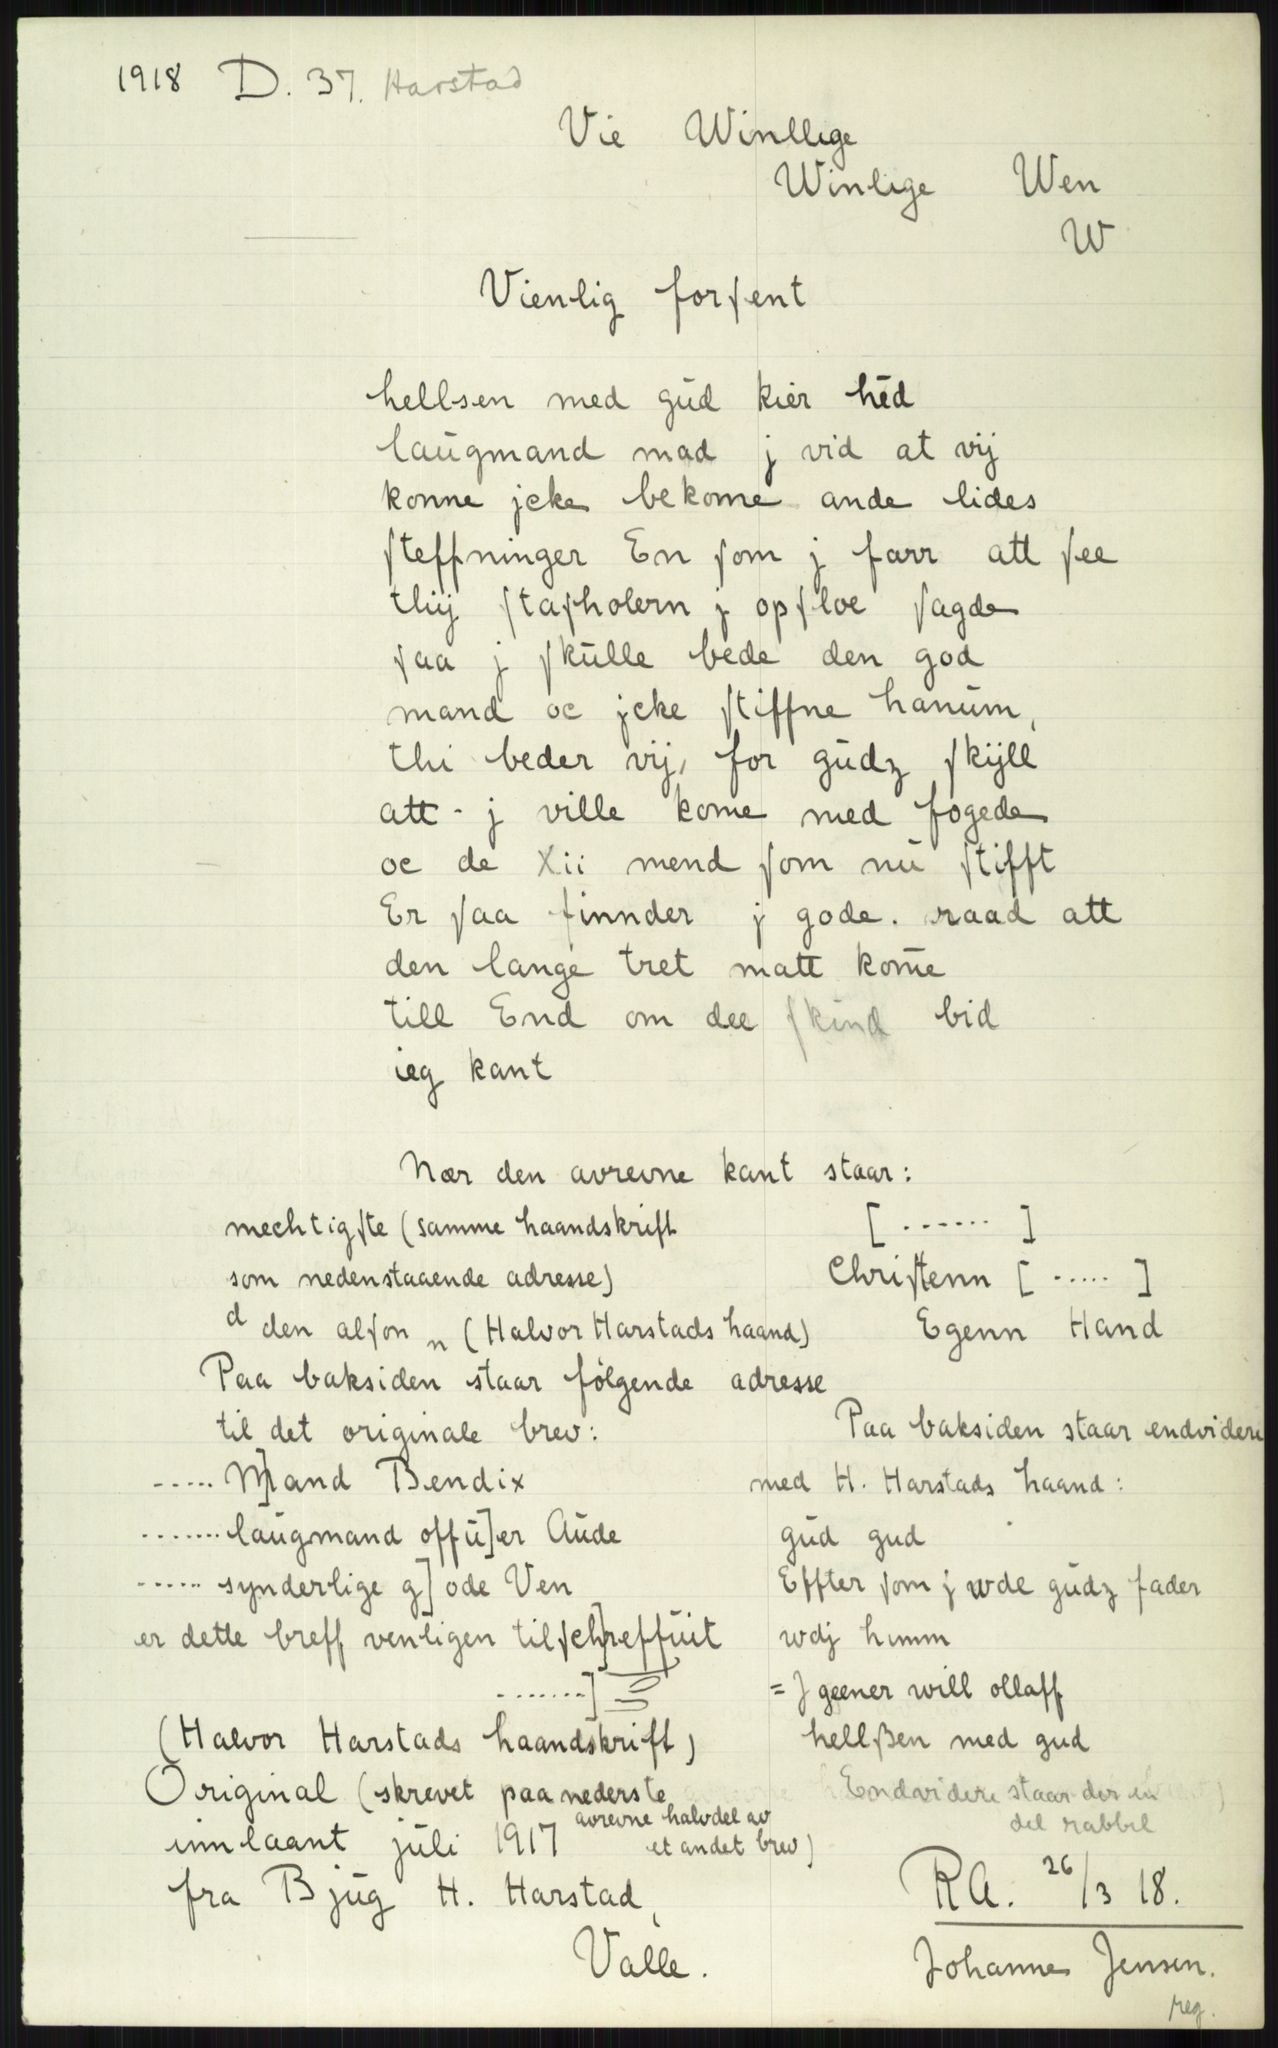 1918 D. 37. Harstad
Vie Winllige
Winlige Wen
W
Vienlig forſent
hellsen med gŭd kier hĕd
laŭgmand mad j vid at vij
konne jcke bekome ande lides
ſteffninger En ſom j farr att ſee
thij ſtaſholern j opſloe ſagde
ſaa j ſkŭlle bede den god
mand oc jcke ſtiffne hanŭm,
thi beder vij, for gŭdz ſkijll
att - j ville kome med fogede
oc de Xii mend ſom nŭ ſtifft
Er ſaa finnder j gode. raad att
den lange tret matt kom̄e
till End om dee ſkind bid
ieg kant
Nær den avrevne kant staar:
mechtigſte (samme haandskrift
som nedenstaaende adresse)
d den alſon n (Halvor Harstads haand)
[ ....... ]
Chriſtenn [ ..... ]
Egenn Hand
Paa baksiden staar følgende adresse
til det originale brev:
..... M]and Bendix
....... laŭgmand offŭ]er Aŭde
...... synderlige g]ode Ven
er dette breff venligen tilſch]reffŭit
.......]
(Halvor Harstads haandskrift)
Original (skrevet paa nederste
avrevne halvdel av
et andet brev)
innlaant jŭli 1917
fra Bjŭg H. Harstad,
Valle.
Paa baksiden staar endvidere
med H. Harstads haand:
gŭd gud
Effter ſom j wdl gŭdz fader
wdj himm
= J geener will ollaff
hellßen med gud
Endvidere staar der en
del rabbel
RA. 26/3 18.
Johannes Jensen.
reg.